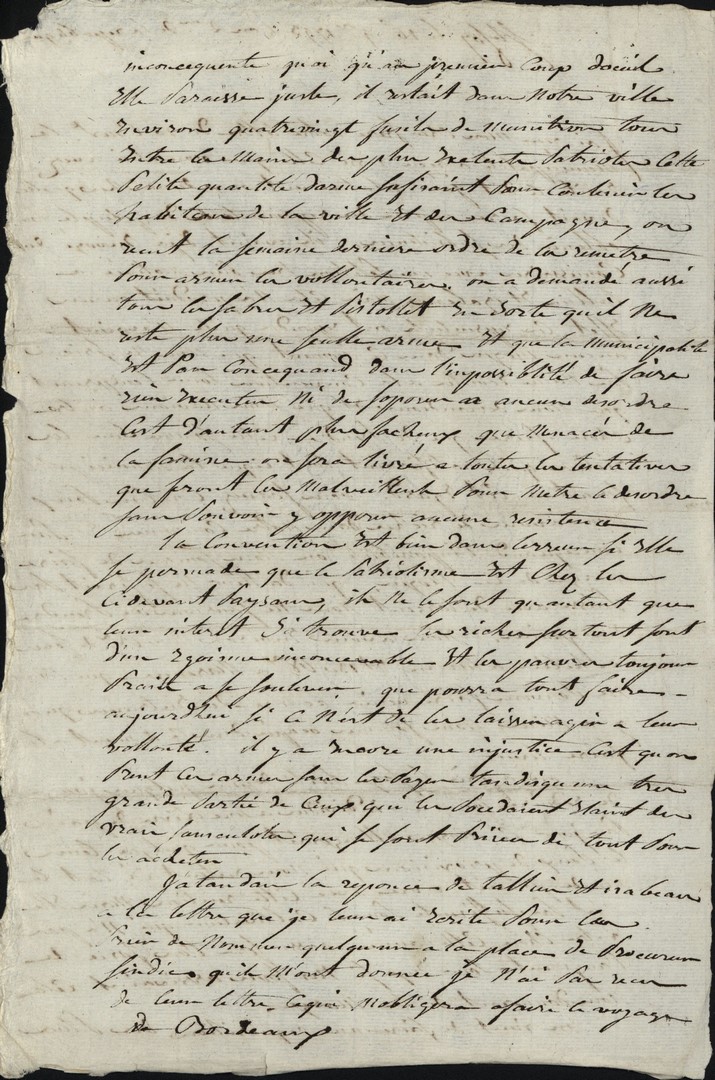 inconcequente quoi qu'au premier Coup d'oeuil
Elle Paraisse juste, il restait dans Notre ville
Environ quatrevingt fusils de munition tous
Entre les Mains des plus Exelents Patriotes Cette
Petite quantité darme sufisaint Pour Contenir les
habitens de la ville Et des Campagnes, on
recut la semaine derniere ordre de les remetre
Pour armer les vollontaires. on a demandé aussi
tous les sabres Et Pistollet En sorte quil Ne
reste plus une seulle arme Et que la Municipalité
Est Par Concequand dans l'impossiblité de faire
rien Executer Ni de soposer a aucun desordre
Cest d'autant plus facheux que Menacés de
la famine on sera livré a toutes les tentatives
que feront les Malveillents Pour Metre le desordre
sans Pouvoir y opposer aucune resistence
la Convention Est bien dans lerreur si Elle
se persuade que le Patriotisme Est Chez les
Cidevant Paysans, ils Ne le sont quautant que
leur interet s'i trouve les riches surtout sont
d'un Egoisme inconcevable Et les pauvres toujours
Prait a se soulever. que pourra tout faire
aujourdhui si ce N'est de les laisser agir a leur
vollonté. il y a Encore une injustice Cest quon
Prent Ces armes sans les Payer tandisqu une tres
grande Partie de Ceux que les Possedaient Etaint des
vrais sansculotes qui se sont Privés de tout Pour
les acheter
J'atandais la reponce de tallien Et isabeau
a la lettre que je leur ai Ecrite Pour les
Prier de Nommer quelquun a la place de Procureur
sindic quils M'ont donnée je N'ai Pas recu
de leurs lettre Cequi Mobligera afaire le voyage
de Bordeaux